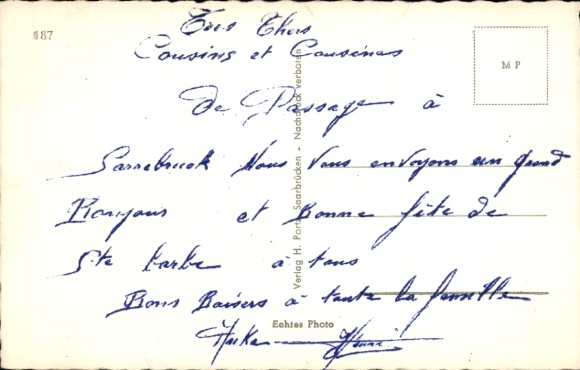 187
Tres Chers
Cousins et Cousines
De Passage à
Sarrebruck Nous Vous envoyons un grand
Bonjour et Bonne fête de
Ste barbe à tous
Bons Baisers à toute la famille
Henri
M P
Verlag H. Portz, Saarbrücken - Nachdruck verboten
Echtes Photo